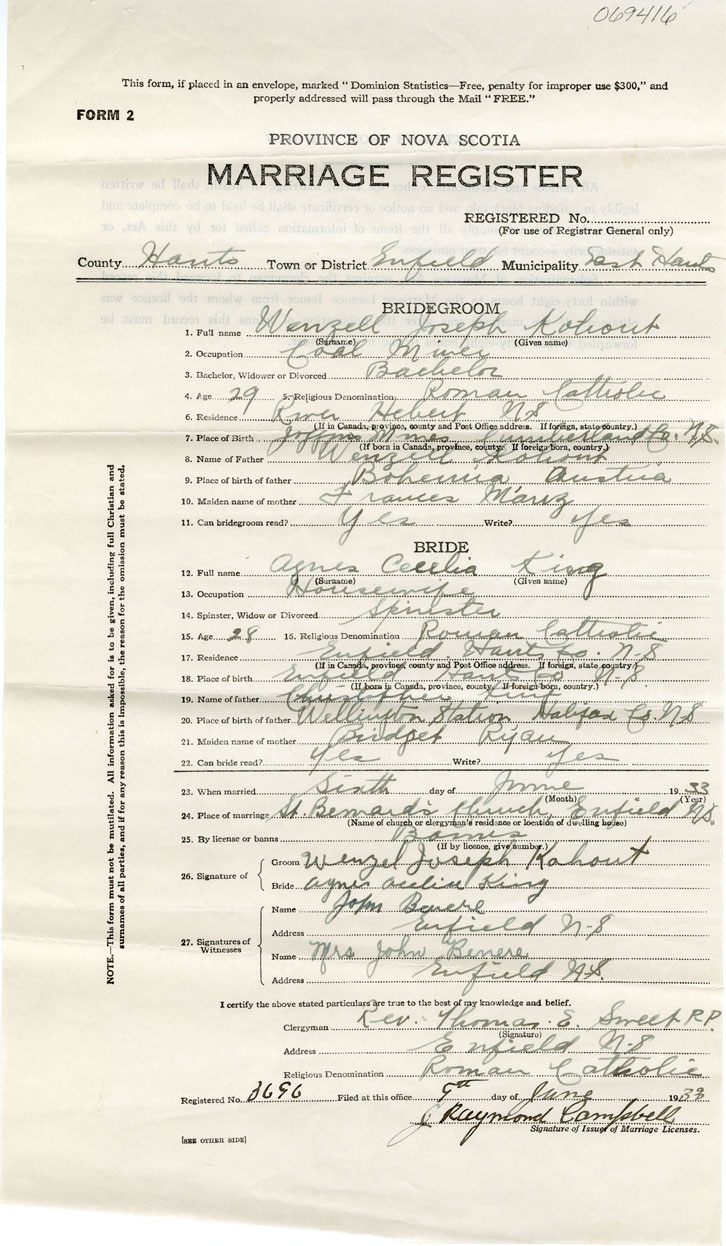 069416
This form, if placed in an envelope, marked "Dominion Statistics—Free, penalty for improper use $300," and
properly addressed will pass through the Mail "FREE."
FORM 2
PROVINCE OF NOVA SCOTIA
MARRIAGE REGISTER
REGISTERED No.
(For use of Registrar General only)
County Hants Town or District Enfield Municipality East Hants
BRIDEGROOM
1. Full name Wenzell Joseph Kohout
(Surname) (Given name)
2. Occupation Coal Miner
3. Bachelor, Widower or Divorced Bachelor
4. Age 29 5. Religious Denomination Roman Catholic
6. Residence River Hebert N S
(If in Canada, province, county and Post Office address. If foreign, state country.)
7. Place of Birth Joggins Mines Cumberland Co. N.S.
(If born in Canada, province, county. If foreign born, country.)
8. Name of Father Wenzell Kohout
9. Place of birth of father Bohemia Austria
10. Maiden name of mother Frances
11. Can bridegroom read? Yes Write? Yes
BRIDE
12. Full name Agnes Cecelia King
(Surname) (Given name)
13. Occupation Housewife
14. Spinster, Widow or Divorced Spinster
15. Age 28 16. Religious Denomination Roman Catholic
17. Residence Enfield Hants Co. N-S
(If in Canada, province, county and Post Office address. If foreign, state country.)
18. Place of birth Enfield Hants Co N-S
(If born in Canada, province, county. If foreign born, country.)
19. Name of father Christopher King
20. Place of birth of father Wellington Station Halifax Co. N S
21. Maiden name of mother Bridget Ryan
22. Can bride read? Yes Write? Yes
23. When married Sixth day of June 1933
(Month) (Year)
24. Place of marriage St. Bernard's Church, Enfield N.S.
(Name of church or clergyman's residence or location of dwelling house)
25. By license or banns Banns
(If by licence, give number.)
26. Signature of Groom Wenzel Joseph Kohout
Bride Agnes King
27. Signatures of Witnesses
Name John
Address Enfield N-S
Name Mrs John
Address Enfield N.S.
I certify the above stated particulars are true to the best of my knowledge and belief.
Clergyman Rev. Thomas E. Sweet P.P.
(Signature)
Address Enfield N-S
Religious Denomination Roman Catholic
Registered No. 3696 Filed at this office 9th day of June 1933
J Raymond Campbell
Signature of Issuer of Marriage Licenses.
[SEE OTHER SIDE]
NOTE.—This form must not be mutilated. All information asked for is to be given, including full Christian and
surnames of all parties, and if for any reason this is impossible, the reason for the omission must be stated.